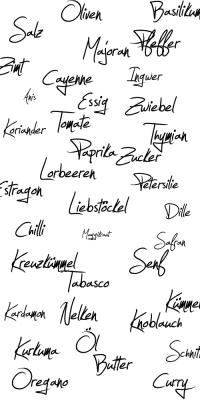 Oliven
Basilikum
Salz
Majoran
Pfeffer
Zimt
Cayenne
Ingwer
Anis
Essig
Zwiebel
Koriander
Tomate
Thymian
Paprika
Zucker
Lorbeeren
Petersilie
Estragon
Liebstöckel
Dille
Chilli
Safran
Kreuzkümmel
Senf
Tabasco
Kümmel
Kardamon
Nelken
Knoblauch
Öl
Kurkuma
Schnitt
Butter
Oregano
Curry